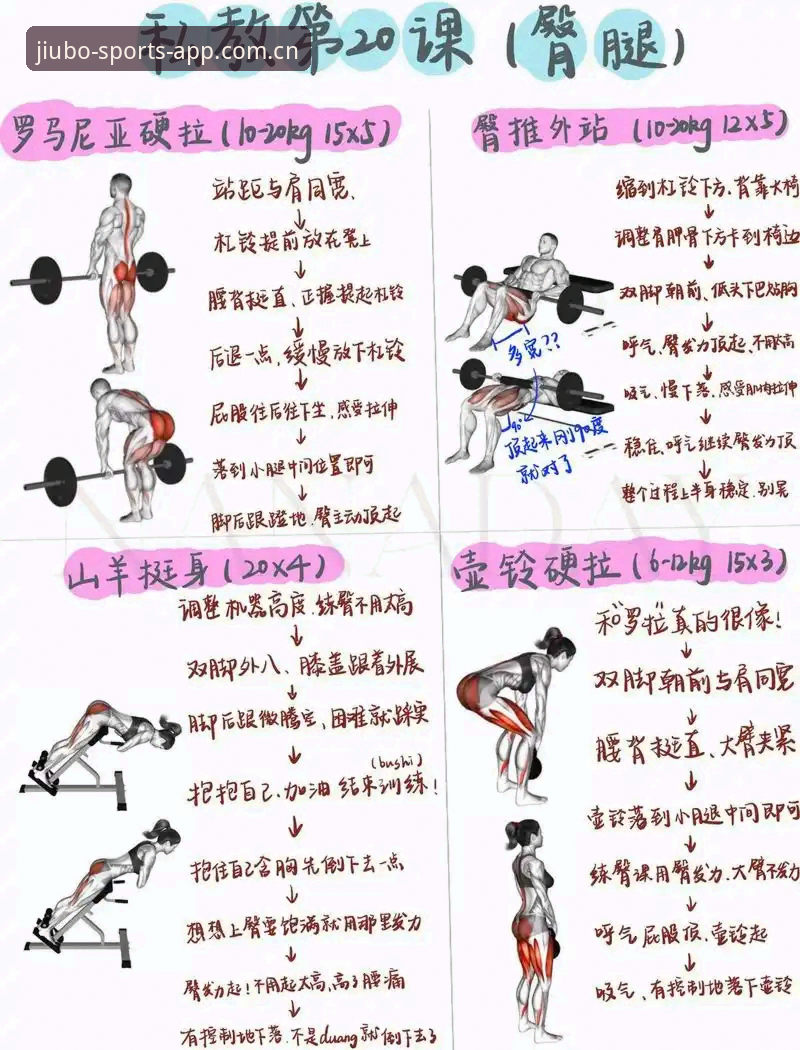 私教第20课(臀腿)
jiubo-sports-app.com.cn
罗马尼亚硬拉(10-20kg 15x5)
站距与肩同宽、
↓
杠铃提前放在凳上
↓
腰背挺直、正握提起杠铃
↓
后退一点,缓慢放下杠铃
↓
屁股往后往下坐,感受拉伸
↓
落到小腿中间位置即可
↓
脚后跟蹬地、臀主动顶起
臀推外站 (10-20kg 12x5)
缩到杠铃下方、背靠大椅
↓
调整肩胛骨下方卡到椅边
↓
双脚朝前、低头下巴贴胸
↓
呼气、臀发力顶起、不用太高
↓
吸气、慢下落、感受肌肉拉伸
↓
稳住、呼气继续臀发力顶
↓
整个过程上半身稳定、别晃
多宽??
90°
顶起来刚90度
就对了
NANADAY
山羊挺身(20x4)
调整机器高度、练臀不用太高
↓
双脚外八、膝盖跟着外展
↓
脚后跟微腾空、困难就踩实
↓
(bushi)
抱抱自己、加油 结束训练!
↓
抱住自己含胸先倒下去一点
↓
想想上臀要饱满就用那里发力
↓
臀发力起!不用起太高,高了腰痛
↓
有控制地下落、不是duang就倒下去了
壶铃硬拉(6-12kg 15x3)
和"罗拉"真的很像!
↓
双脚朝前与肩同宽
↓
腰背挺直、大臂夹紧
↓
壶铃落到小腿中间即可
↓
练臀课用臀发力、大臂不发力
↓
呼气 屁股顶、壶铃起
↓
吸气、有控制地落下壶铃